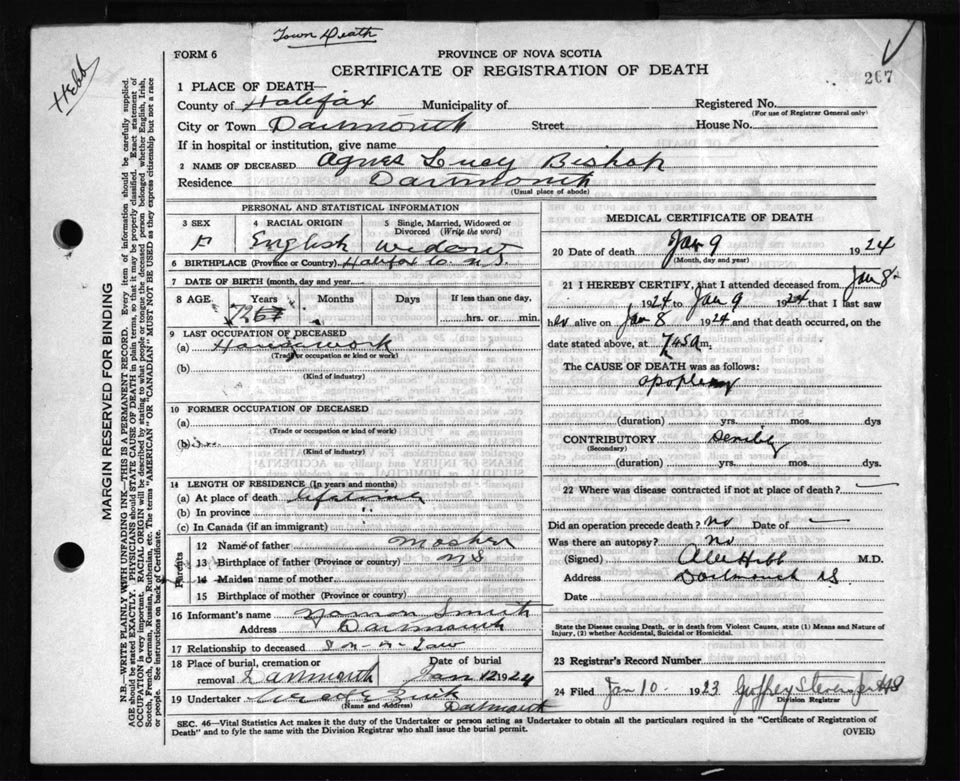 Town Death
FORM 6
PROVINCE OF NOVA SCOTIA
CERTIFICATE OF REGISTRATION OF DEATH
267
Hebb
1 PLACE OF DEATH—
County of Halifax Municipality of Registered No.
(For use of Registrar General only)
City or Town Dartmouth Street House No.
If in hospital or institution, give name
2 NAME OF DECEASED Agnes Lucy Bishop
Residence Dartmouth
(Usual place of abode)
PERSONAL AND STATISTICAL INFORMATION
3 SEX 4 RACIAL ORIGIN 5 Single, Married, Widowed or
Divorced (Write the word)
F English Widow
6 BIRTHPLACE (Province or Country) Halifax Co. N.S.
7 DATE OF BIRTH (month, day and year)
8 AGE Years Months Days If less than one day,
hrs. or min.
9 LAST OCCUPATION OF DECEASED
(a) Housework
(Trade or occupation or kind of work)
(b)
(Kind of industry)
10 FORMER OCCUPATION OF DECEASED
(a)
(Trade or occupation or kind of work)
(b)
(Kind of industry)
11 LENGTH OF RESIDENCE (In years and months)
(a) At place of death lifetime
(b) In province "
(c) In Canada (if an immigrant)
Parents
12 Name of father Mosher
13 Birthplace of father (Province or country) NS
14 Maiden name of mother
15 Birthplace of mother (Province or country)
16 Informant's name Smith
Address Dartmouth
17 Relationship to deceased Son-in-Law
18 Place of burial, cremation or Date of burial
removal Dartmouth Jan 12 1924
19 Undertaker
(Name and Address) Dartmouth
MEDICAL CERTIFICATE OF DEATH
20 Date of death Jan 9 1924
(Month, day and year)
21 I HEREBY CERTIFY, that I attended deceased from Jan 8
1924 to Jan 9 1924 that I last saw
her alive on Jan 8 1924 and that death occurred, on the
date stated above, at 7 45 a m,
The CAUSE OF DEATH was as follows:
apoplexy
(duration) yrs. mos. dys
CONTRIBUTORY Senility
(Secondary)
(duration) yrs. mos. dys.
22 Where was disease contracted if not at place of death? —
Did an operation precede death? No Date of —
Was there an autopsy? No
(Signed) Hebb M.D.
Address Dartmouth NS
Date
State the Disease causing Death, or in death from Violent Causes, state (1) Means and Nature of
Injury, (2) whether Accidental, Suicidal or Homicidal.
23 Registrar's Record Number
24 Filed Jan 10 1923 Geoffrey Stevens
Division Registrar
SEC. 46—Vital Statistics Act makes it the duty of the Undertaker or person acting as Undertaker to obtain all the particulars required in the "Certificate of Registration of
Death" and to fyle the same with the Division Registrar who shall issue the burial permit.
(OVER)
MARGIN RESERVED FOR BINDING
N.B.—WRITE PLAINLY WITH UNFADING INK—THIS IS A PERMANENT RECORD. Every item of information should be carefully supplied.
AGE should be stated EXACTLY. PHYSICIANS should STATE CAUSE OF DEATH in plain terms, so that it may be properly classified. Exact statement of
OCCUPATION is very important. RACIAL ORIGIN will be described by stating to what people or tongue the deceased person belonged whether English, Irish,
Scotch, French, German, Russian, Ruthenian, etc. The terms "AMERICAN" OR "CANADIAN" MUST NOT BE USED as they express citizenship but not a race
or people. See instructions on back of Certificate.